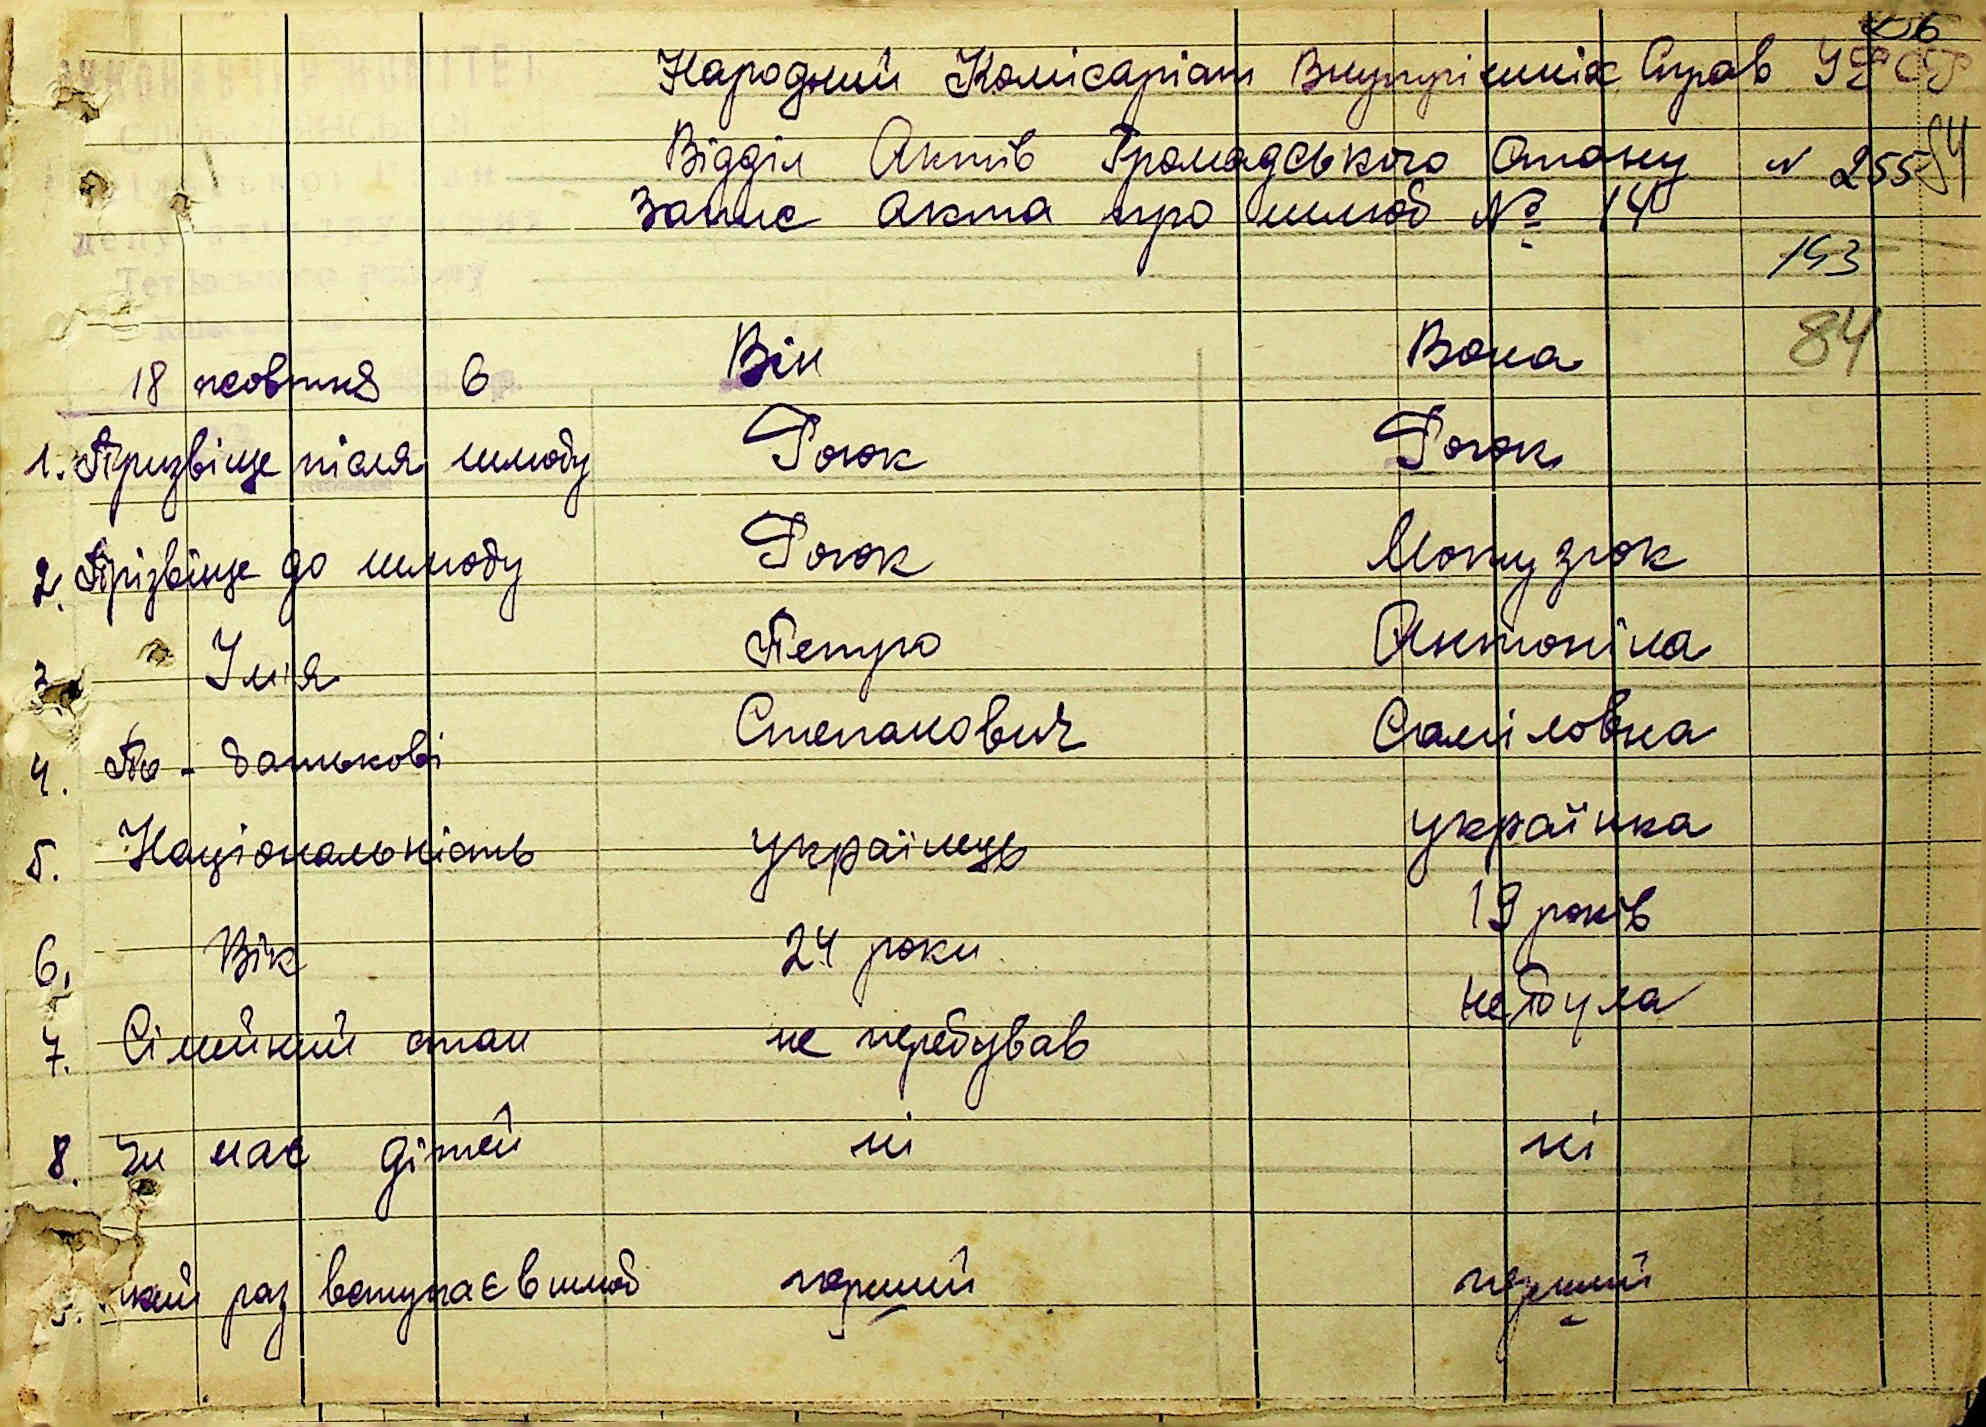 6
Народний Комісаріат Внутрішніх Справ УРСР
Відділ Актів Громадського Стану N 255 84
Запис акта про шлюб № 14
153
84
18 жовтня 6 Він Вона
1. Призвіще після шлюбу Гоюк Гоюк
2. Прізвіще до шлюбу Гоюк
3. Імія Петро Антоніна
4. По-батькові Степанович Саміловна
5. Національність українець українка
6. Вік 24 роки 19 років
7. Сімейний стан не перебував не була
8. Чи має дітей ні ні
кий раз вступає в шлюб перший перший